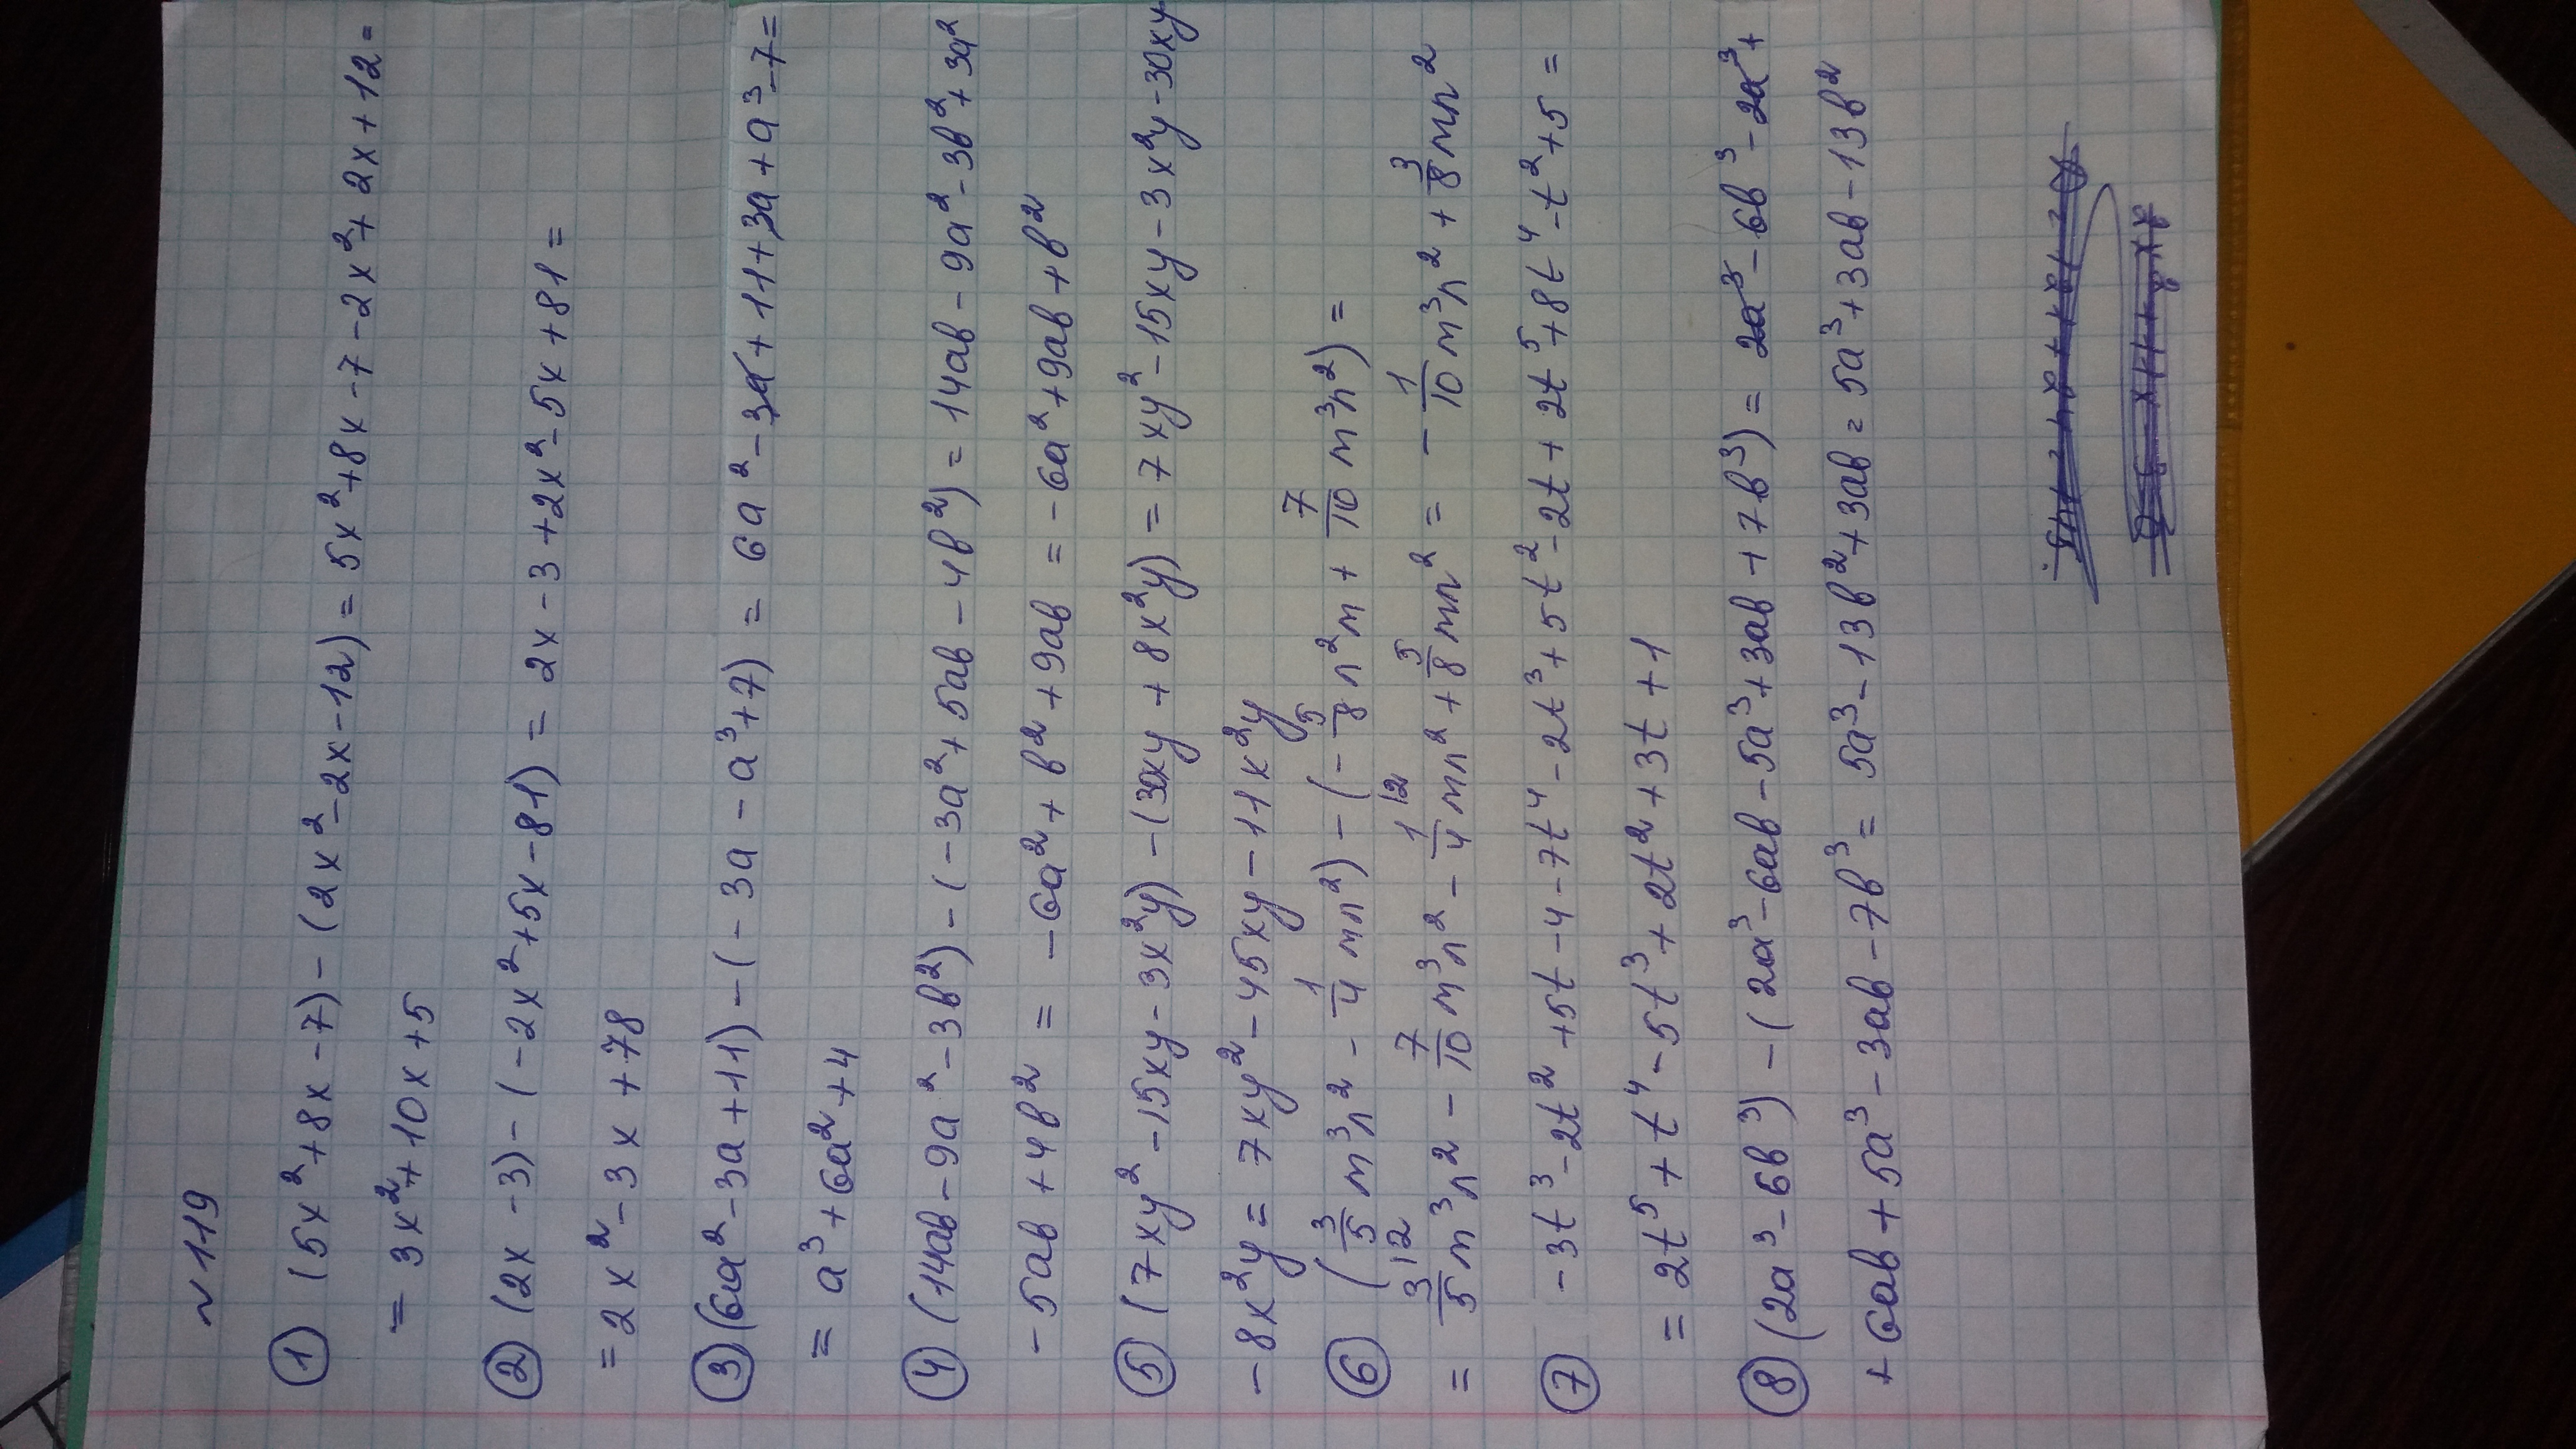 ~ 1119
① (5x²+8x-7)-(2x²-2x-12)=5x²+8x-7-2x²+2x+12=
= 3x²+10x+5
② (2x-3)-(-2x²+5x-81)=2x-3+2x²-5x+81=
= 2x²-3x+78
③ (6a²-3a+11)-(-3a-a³+7)=6a²-3a+11+3a+a³-7=
= a³+6a²+4
④ (14ab-9a²-3b²)-(-3a²+5ab-4b²)=14ab-9a²-3b²+3a²
-5ab+4b² = -6a²+b²+9ab = -6a²+9ab+b²
⑤ (7xy²-15xy-3x²y)-(30xy+8x²y)=7xy²-15xy-3x²y-30xy
-8x²y=7xy²-45xy-11x²y
⑥ (3/5 m³n² - 1/4 mn²) - (-5/8 n²m + 7/10 m³n²) =
= 3/5 m³n² - 7/10 m³n² - 1/4 mn² + 5/8 mn² = - 1/10 m³n² + 3/8 mn²
⑦ -3t³-2t²+5t-4-7t⁴-2t³+5t²-2t+2t⁵+8t⁴-t²+5=
= 2t⁵+t⁴-5t³+2t²+3t+1
⑧ (2a³-6b³)-(2a³-6ab-5a³+3ab+7b³)=2a³-6b³-2a³+
+6ab+5a³-3ab-7b³=5a³-13b²+3ab=5a³+3ab-13b²